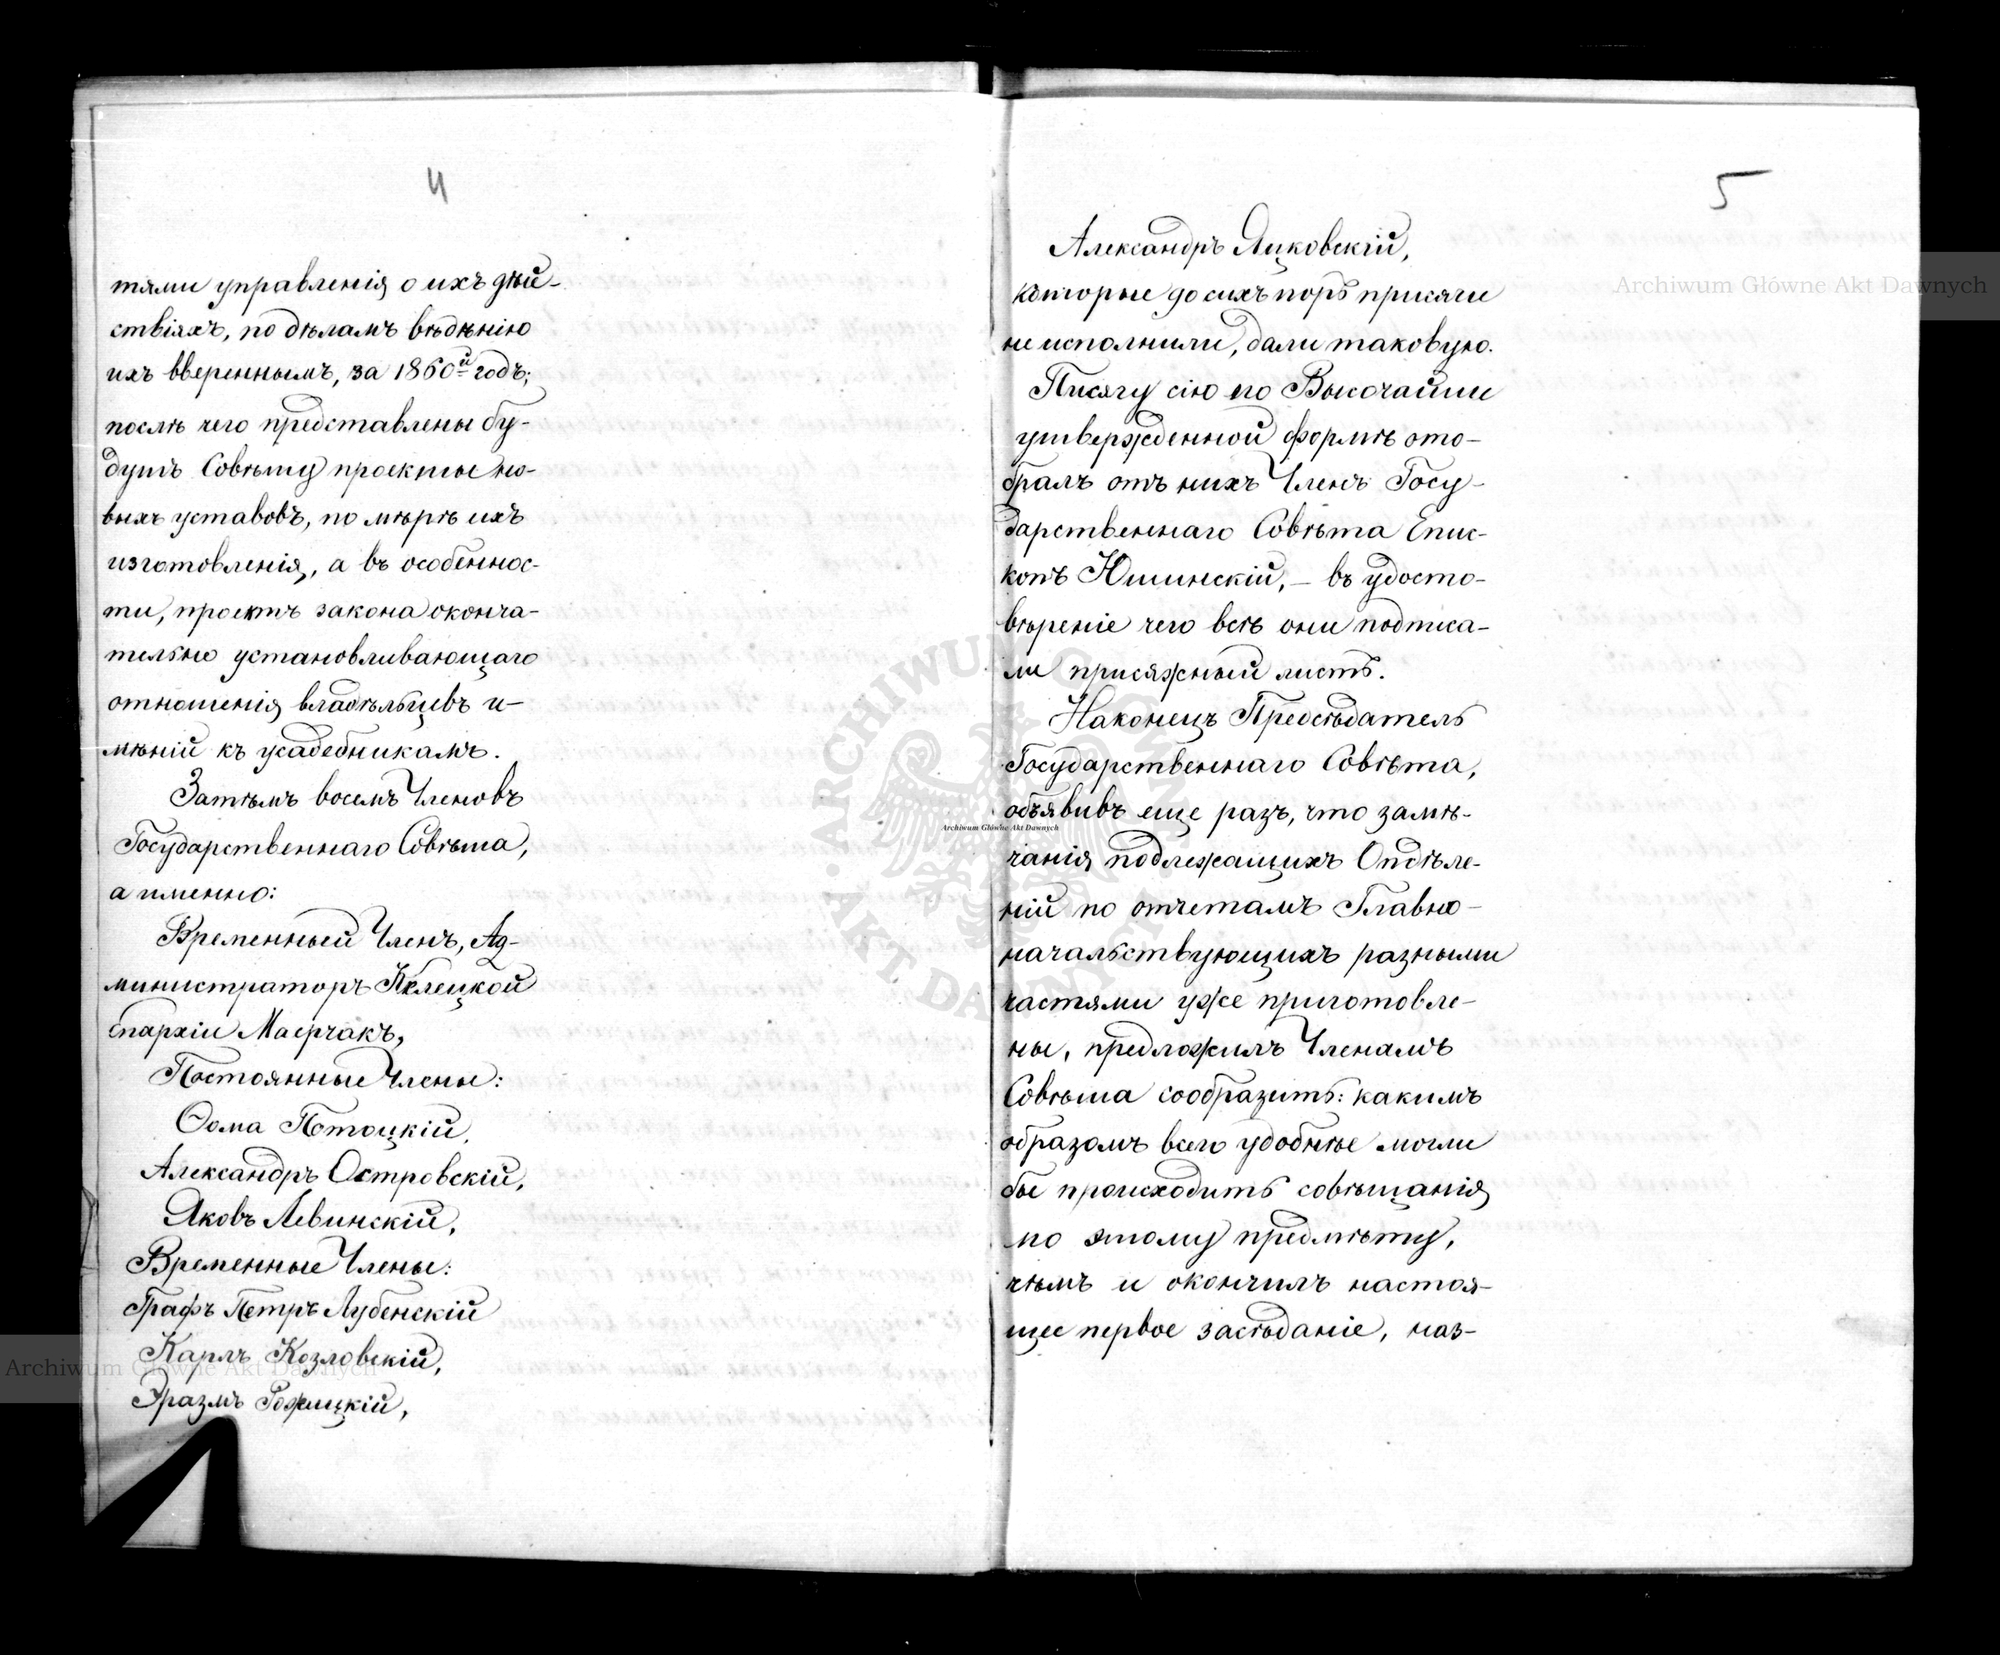 4
тями управленія о ихъ дѣй-
ствіяхъ, по дѣламъ вѣдѣнію
ихъ ввереннымъ, за 1860й годъ;
послѣ чего представлены бу-
дутъ Совѣту проекты но-
выхъ уставовъ, по мѣрѣ ихъ
изготовленія, а въ особеннос-
ти, проектъ закона оконча-
тельно установливающаго
отношенія владѣльцевъ и-
мѣній къ усадебникамъ.
Затѣмъ восемъ Членовъ
Государственнаго Совѣта,
а именно:
Временный Членъ, Ад-
министраторъ Келецкой
епархіи Маерчакъ,
Постоянные Члены:
Ѳома Потоцкій,
Александръ Островскій,
Яковъ Левинскій,
Временные Члены:
Графъ Петръ Лубенскій
Карлъ Козловскій,
Эразмъ Рожицкій,
5
Александръ Яцковскій,
которые до сихъ поръ присяги
не исполнили, дали таковую.
Писягу сію по Высочайше
утвержденной формѣ ото-
бралъ отъ нихъ Членъ Госу-
дарственнаго Совѣта Епис-
копъ Юшинскій, – въ удосто-
вѣреніе чего всѣ они подписа-
ли присяжный листъ.
Наконецъ Предсѣдатель
Государственнаго Совѣта,
объявивъ еще разъ, что замѣ-
чанія подлежащихъ Отдѣле-
ній по отчетамъ Главно-
начальствующихъ разными
частями уже приготовле-
ны, предложилъ Членамъ
Совѣта сообразить: какимъ
образомъ всего удобнѣе могли
бы происходить совѣщанія
по этому предмѣту,
чѣмъ и окончилъ настоя-
щее первое засѣданіе, наз-
Archiwum Główne Akt Dawnych
Archiwum Główne Akt Dawnych
Archiwum Główne Akt Dawnych
ARCHIWUM GŁÓWNE AKT DAWNYCH